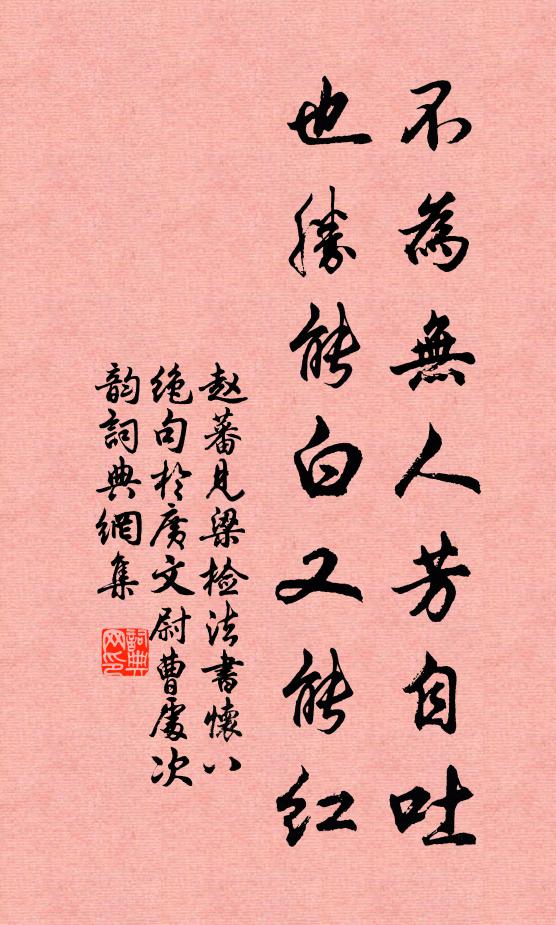 不為無人芳自吐
也勝能白又能紅
赵蕃見梁檢法書懷八
绝句於廣文尉曹處次
韵詞典網集
詞典
网印